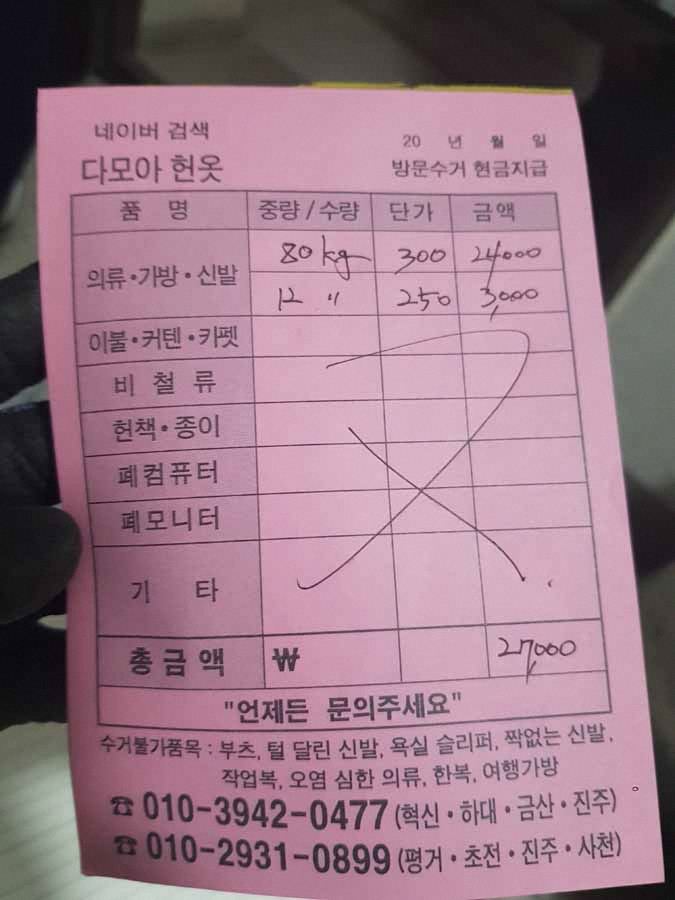 네이버 검색
20 년 월 일
다모아 헌옷
방문수거 현금지급
품 명 중량/수량 단가 금액
의류·가방·신발 80kg 300 24,000
12 〃 250 3,000
이불·커텐·카펫
비 철 류
헌책·종이
폐컴퓨터
폐모니터
기 타
총금액 ₩ 27,000
"언제든 문의주세요"
수거불가품목 : 부츠, 털 달린 신발, 욕실 슬리퍼, 짝없는 신발,
작업복, 오염 심한 의류, 한복, 여행가방
☎ 010-3942-0477 (혁신·하대·금산·진주)
☎ 010-2931-0899 (평거·초전·진주·사천)